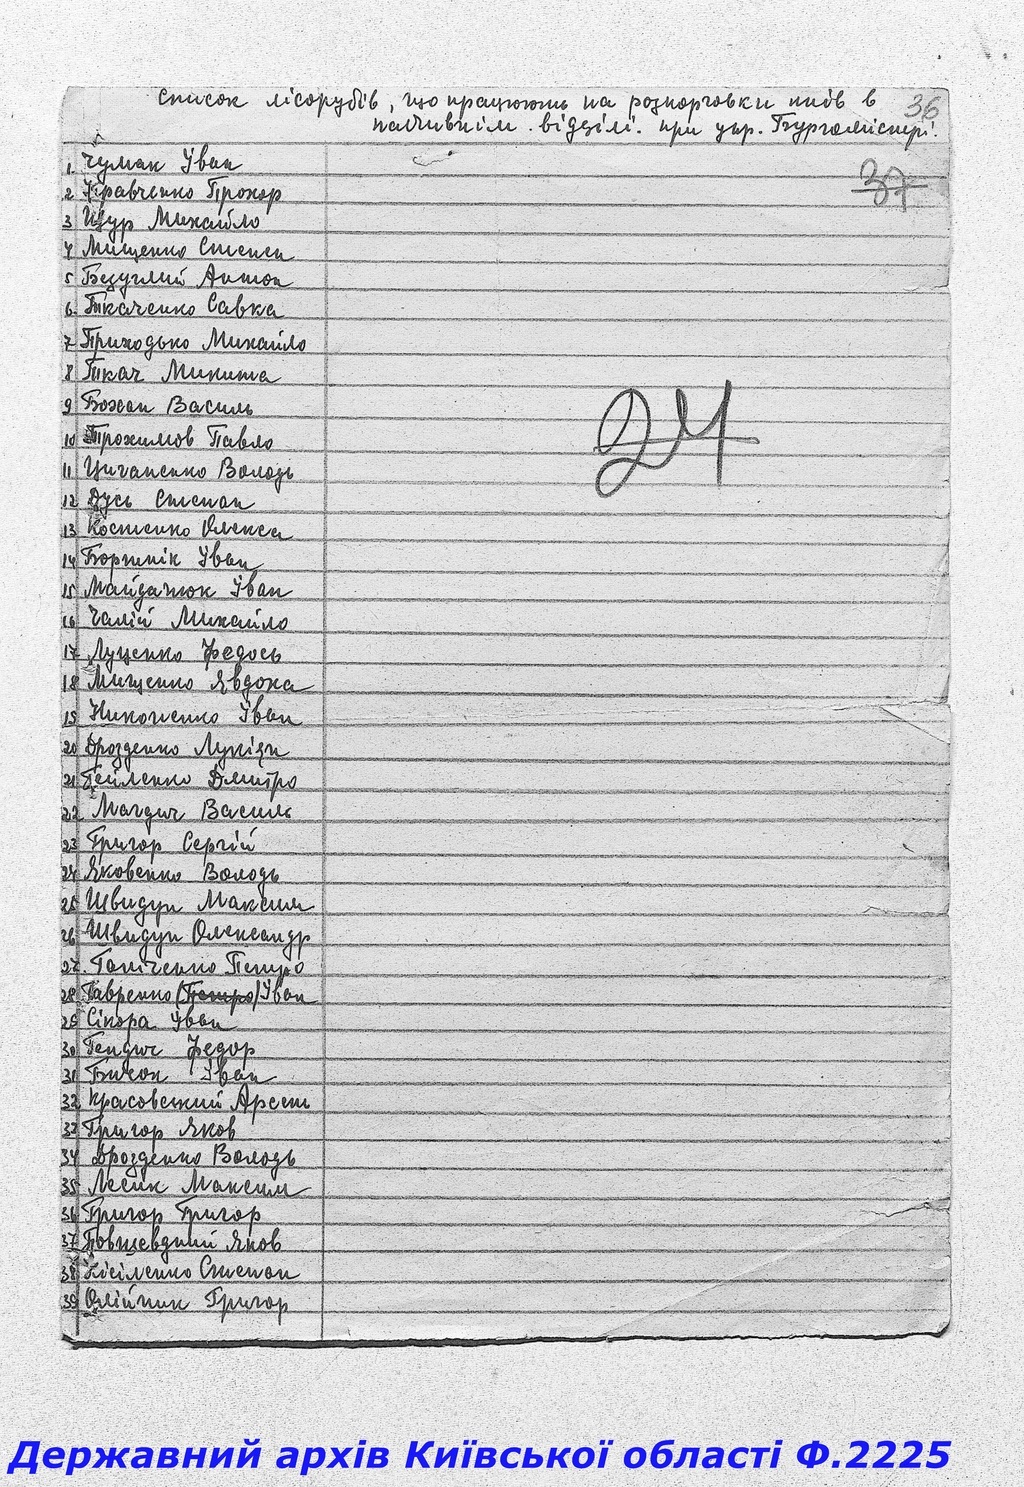 Список лісорубів, що працюють на розкорчовки пнів в 36
паливнім відділі при укр. Бургомістрі.
37
1. Чумак Іван
2 Кравченко Прохор
3 Щур Михайло
4 Мищенко Степан
5 Безуглий Антон
6. Ткаченко Савка
7 Приходько Михайло
8 Ткач Микита
9 Божан Василь
10 Трохимов Павло
11 Циганенко Володь
12 Дусь Степан
13 Костенко Олекса
14 Бортнік Іван
15 Майданюк Іван
16 Чалій Михайло
17 Луценко Федось
18 Мищенко Явдоха
19 Никоненко Іван
20 Дрозденко Лукіян
21 Дмитро
22 Магдич Василь
23 Григор Сергій
24 Яковенко Володь
25 Швидун Максим
26 Швидун Олександр
27. Паніченко Петро
28 Гавренко (Петро) Іван
29 Сікора Іван
30 Гендич Федор
31 Бичок Іван
32 Красовський Арсень
33 Григор Яков
34 Дрозденко Володь
35 Лесик Максим
36 Григор Григор
37 Яков
38 Кісіленко Степан
39 Олійник Григор
24
Державний архів Київської області Ф.2225